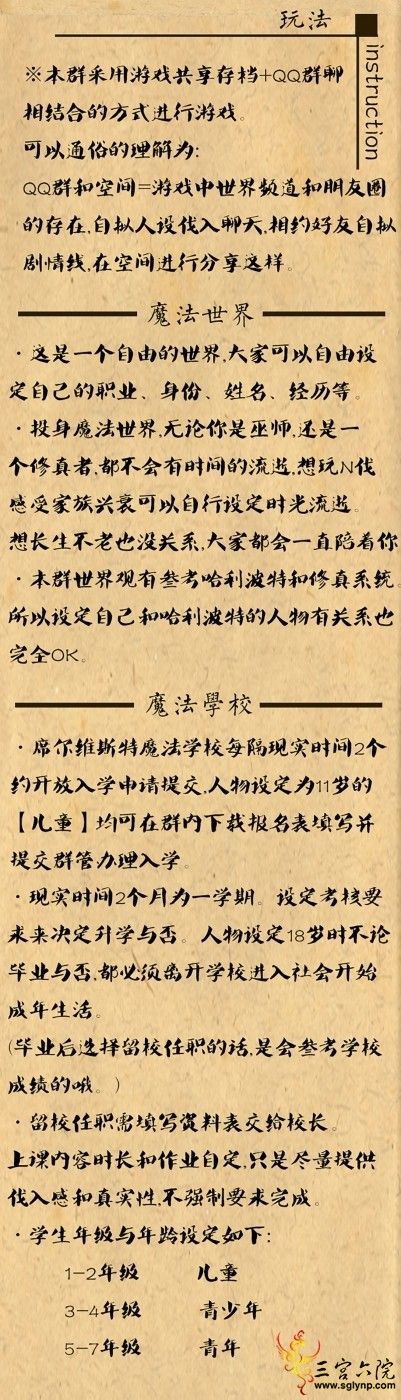 玩法
instruction
※本群采用游戏共享存档+QQ群聊
相结合的方式进行游戏。
可以通俗的理解为:
QQ群和空间=游戏中世界频道和朋友圈
的存在,自拟人设代入聊天,相约好友自拟
剧情线,在空间进行分享这样。
魔法世界
·这是一个自由的世界,大家可以自由设
定自己的职业、身份、姓名、经历等。
·投身魔法世界,无论你是巫师,还是一
个修真者,都不会有时间的流逝,想玩N代
感受家族兴衰可以自行设定时光流逝。
想长生不老也没关系,大家都会一直陪着你
·本群世界观有参考哈利波特和修真系统。
所以设定自己和哈利波特的人物有关系也
完全OK。
魔法學校
·席尔维斯特魔法学校每隔现实时间2个
约开放入学申请提交,人物设定为11岁的
【儿童】均可在群内下载报名表填写并
提交群管办理入学。
·现实时间2个月为一学期。设定考核要
求来决定升学与否。人物设定18岁时不论
毕业与否,都必须离开学校进入社会开始
成年生活。
(毕业后选择留校任职的话,是会参考学校
成绩的哦。)
·留校任职需填写资料表交给校长。
上课内容时长和作业自定,只是尽量提供
代入感和真实性,不强制要求完成。
·学生年级与年龄设定如下:
1-2年级 儿童
3-4年级 青少年
5-7年级 青年
三宫六院
www.sglynp.com